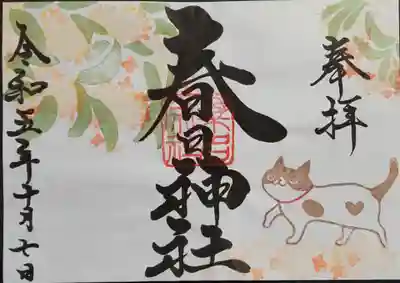 奉拝
春日神社
令和五年十月七日